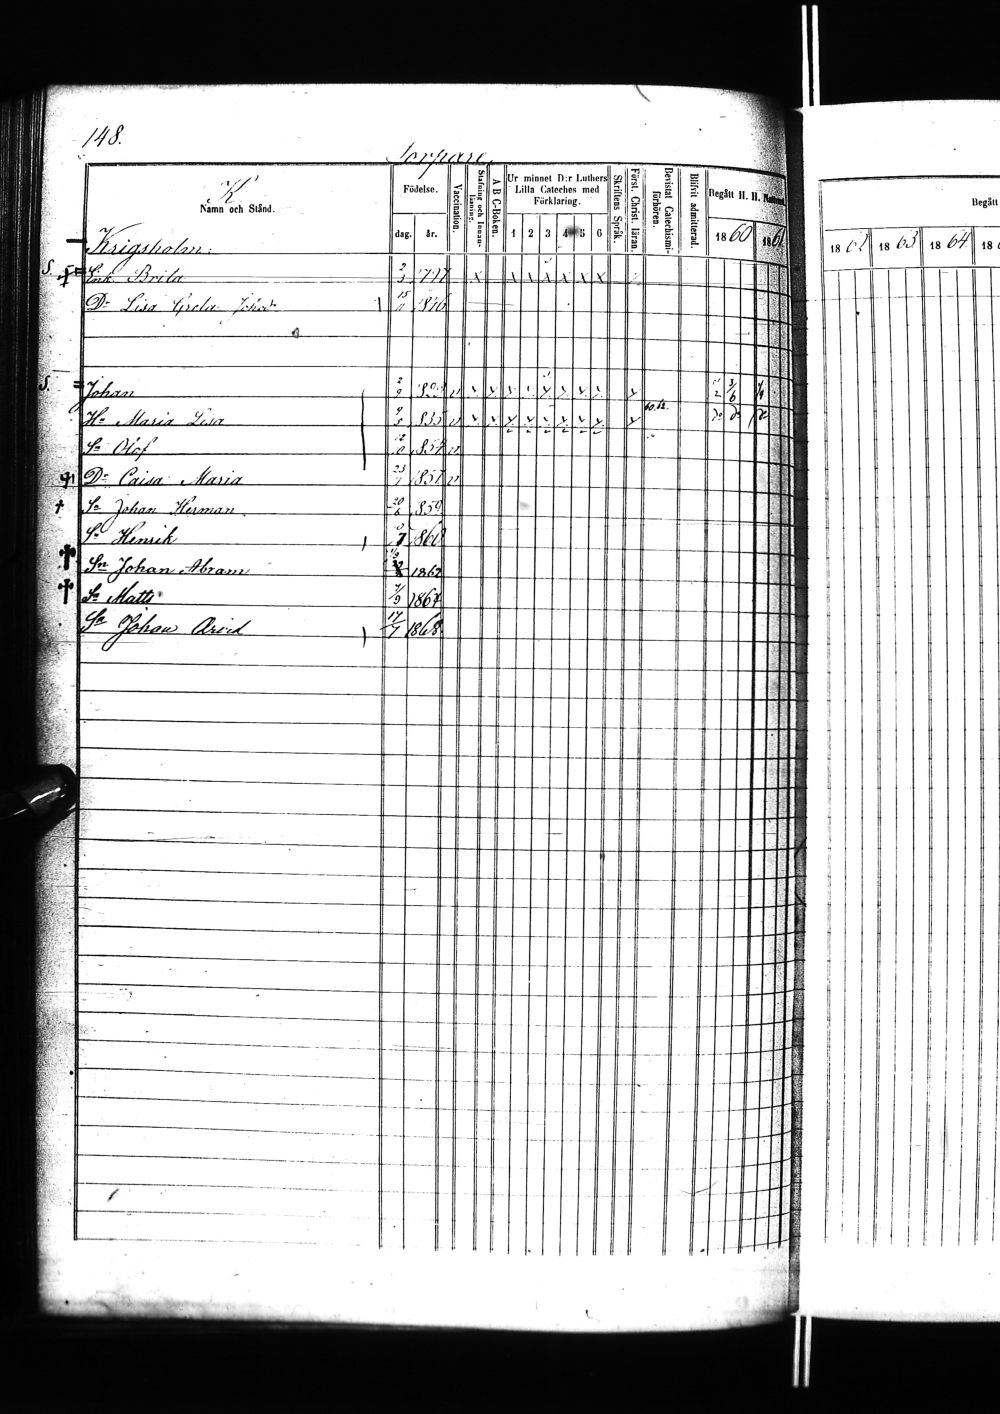 148.
Torpare.
K
Namn och Stånd.
Födelse.
dag. år.
Vaccination.
Stafning och Innanläsning.
A B C-Boken.
Ur minnet D:r Luthers Lilla Cateches med Förklaring.
1 2 3 4 5 6
Skriftens Språk.
Först. Christ. läran.
Bevistat Catechismiförhören.
Blifvit admitterad.
Begått H. H. Nattvard
1860 1861
Begått
1862 1863 1864 18
Krigsholm.
S. Enk. Brita 2/3 1797 x
Dr Lisa Greta Johad. 15/11 1846
S. Johan 2/9 v
Hu Maria Lisa 9/5 1835 v 60.62.
Sn Olof 12/10 1854 v
Dr Caisa Maria 23/7 1857 v
Sn Johan Herman 20/6 1859
Sn Henrik 1860
Sn Johan Abram 1862
Sn Matts 7/9 1867
Sn Johan Arvid 17/7 1868